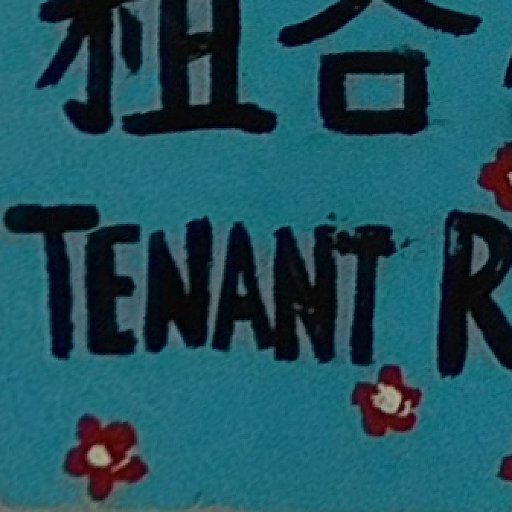 租合
TENANT R